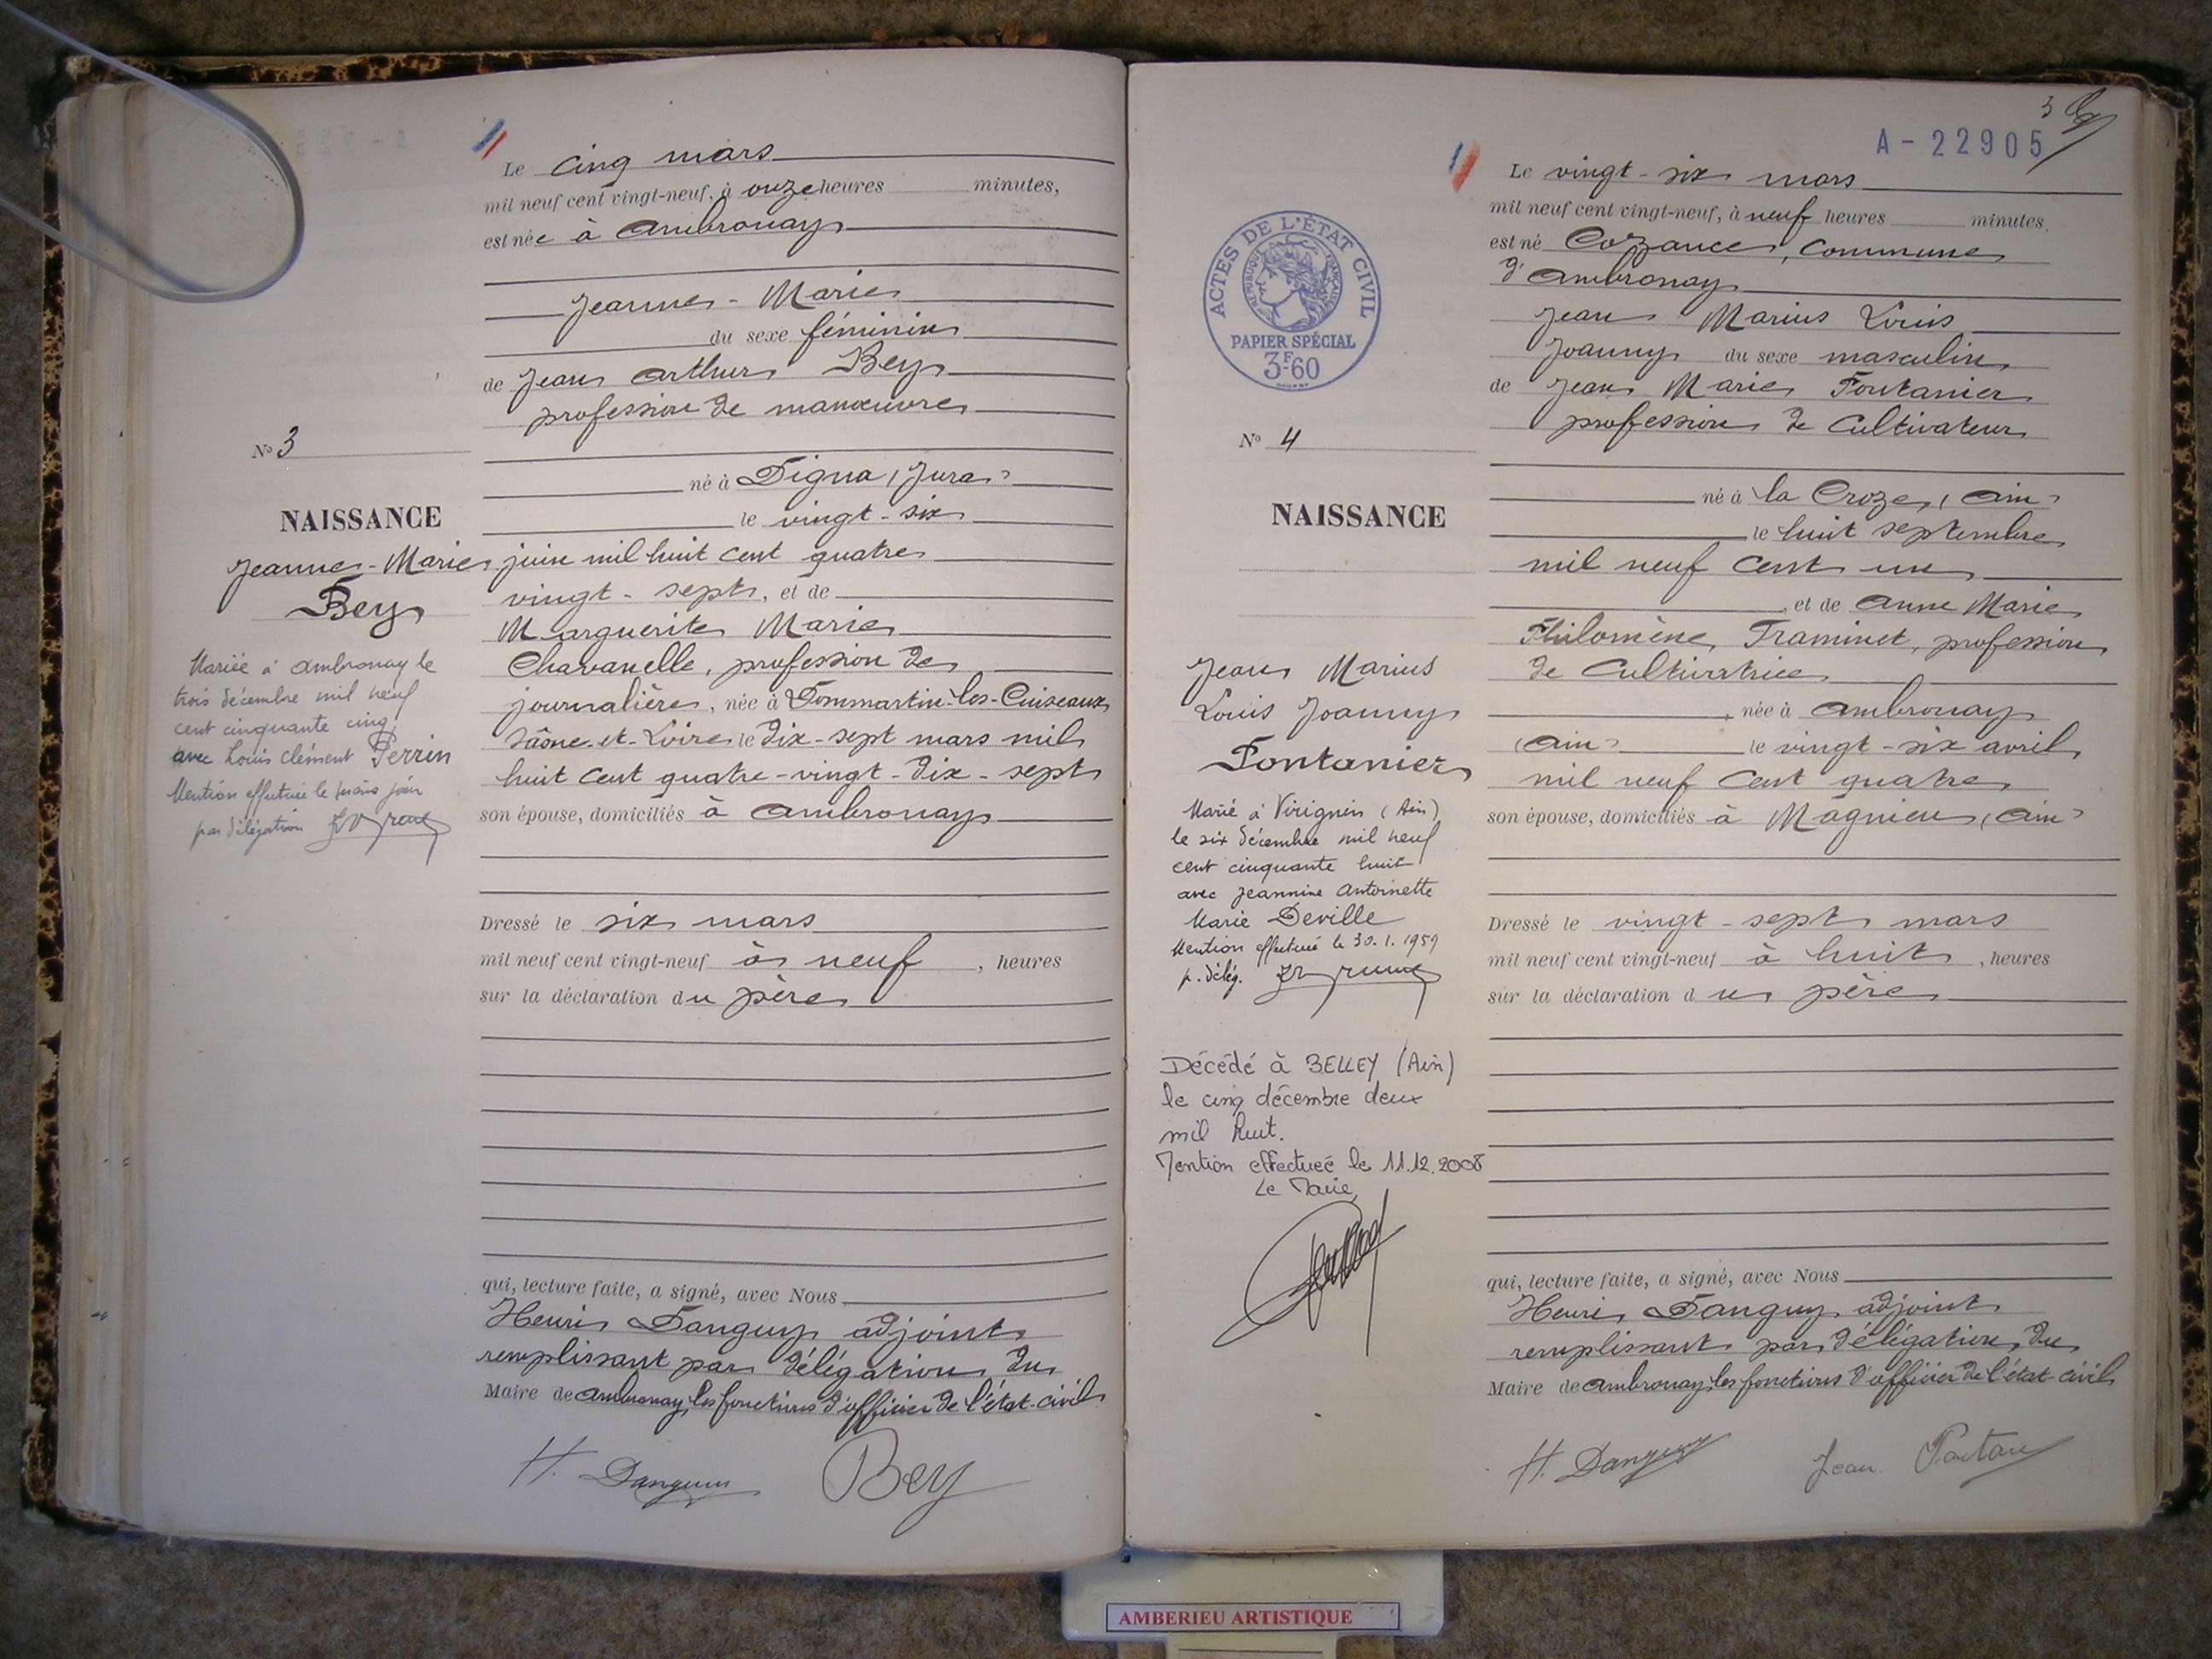 Le cinq mars
mil neuf cent vingt-neuf, à onze heures minutes,
est née à Ambronay
Jeanne-Marie
du sexe féminin
de Jean Arthur Bey
profession de manœuvre
né à Digna (Jura)
le vingt-six
juin mil huit cent quatre
vingt-sept, et de
Marguerite Marie
Chavanelle, profession de
journalière, née à Dommartin-les-Cuiseaux
Saône-et-Loire le dix-sept mars mil
huit cent quatre-vingt-dix-sept
son épouse, domiciliés à Ambronay
Dressé le six mars
mil neuf cent vingt-neuf à neuf, heures
sur la déclaration du père
qui, lecture faite, a signé, avec Nous
Henri Danguy adjoint
remplissant par délégation du
Maire de Ambronay les fonctions d'officier de l'état-civil
H. Danguy Bey
No 3
NAISSANCE
Jeanne-Marie
Bey
Mariée à Ambronay le
trois décembre mil neuf
cent cinquante cinq
avec Louis Clément Perrin
Mention effectuée le même jour
par délégation
3
A-22905
Le vingt-six mars
mil neuf cent vingt-neuf, à neuf heures minutes,
est né Cozance, commune
d'Ambronay
Jean Marius Louis
Joanny du sexe masculin
de Jean Marie Fontanier
profession de cultivateur
né à la Croze (Ain)
le huit septembre
mil neuf cent un
, et de Anne Marie
Philomène Traminet, profession
de cultivatrice
, née à Ambronay
(Ain) le vingt-six avril
mil neuf cent quatre
son épouse, domiciliés à Magnieu (Ain)
Dressé le vingt-sept mars
mil neuf cent vingt-neuf à huit, heures
sur la déclaration du père
qui, lecture faite, a signé, avec Nous
Henri Danguy adjoint
remplissant par délégation du
Maire de Ambronay les fonctions d'officier de l'état-civil
H. Danguy Jean
ACTES DE L'ÉTAT CIVIL
RÉPUBLIQUE FRANÇAISE
PAPIER SPÉCIAL
3F60
No 4
NAISSANCE
Jean Marius
Louis Joanny
Fontanier
Marié à Virignin (Ain)
le six décembre mil neuf
cent cinquante huit
avec Jeannine Antoinette
Marie Deville
Mention effectuée le 30.1.1959
p. délég.
Décédé à BELLEY (Ain)
le cinq décembre deux
mil huit.
Mention effectuée le 11.12.2008
Le Maire,
AMBERIEU ARTISTIQUE